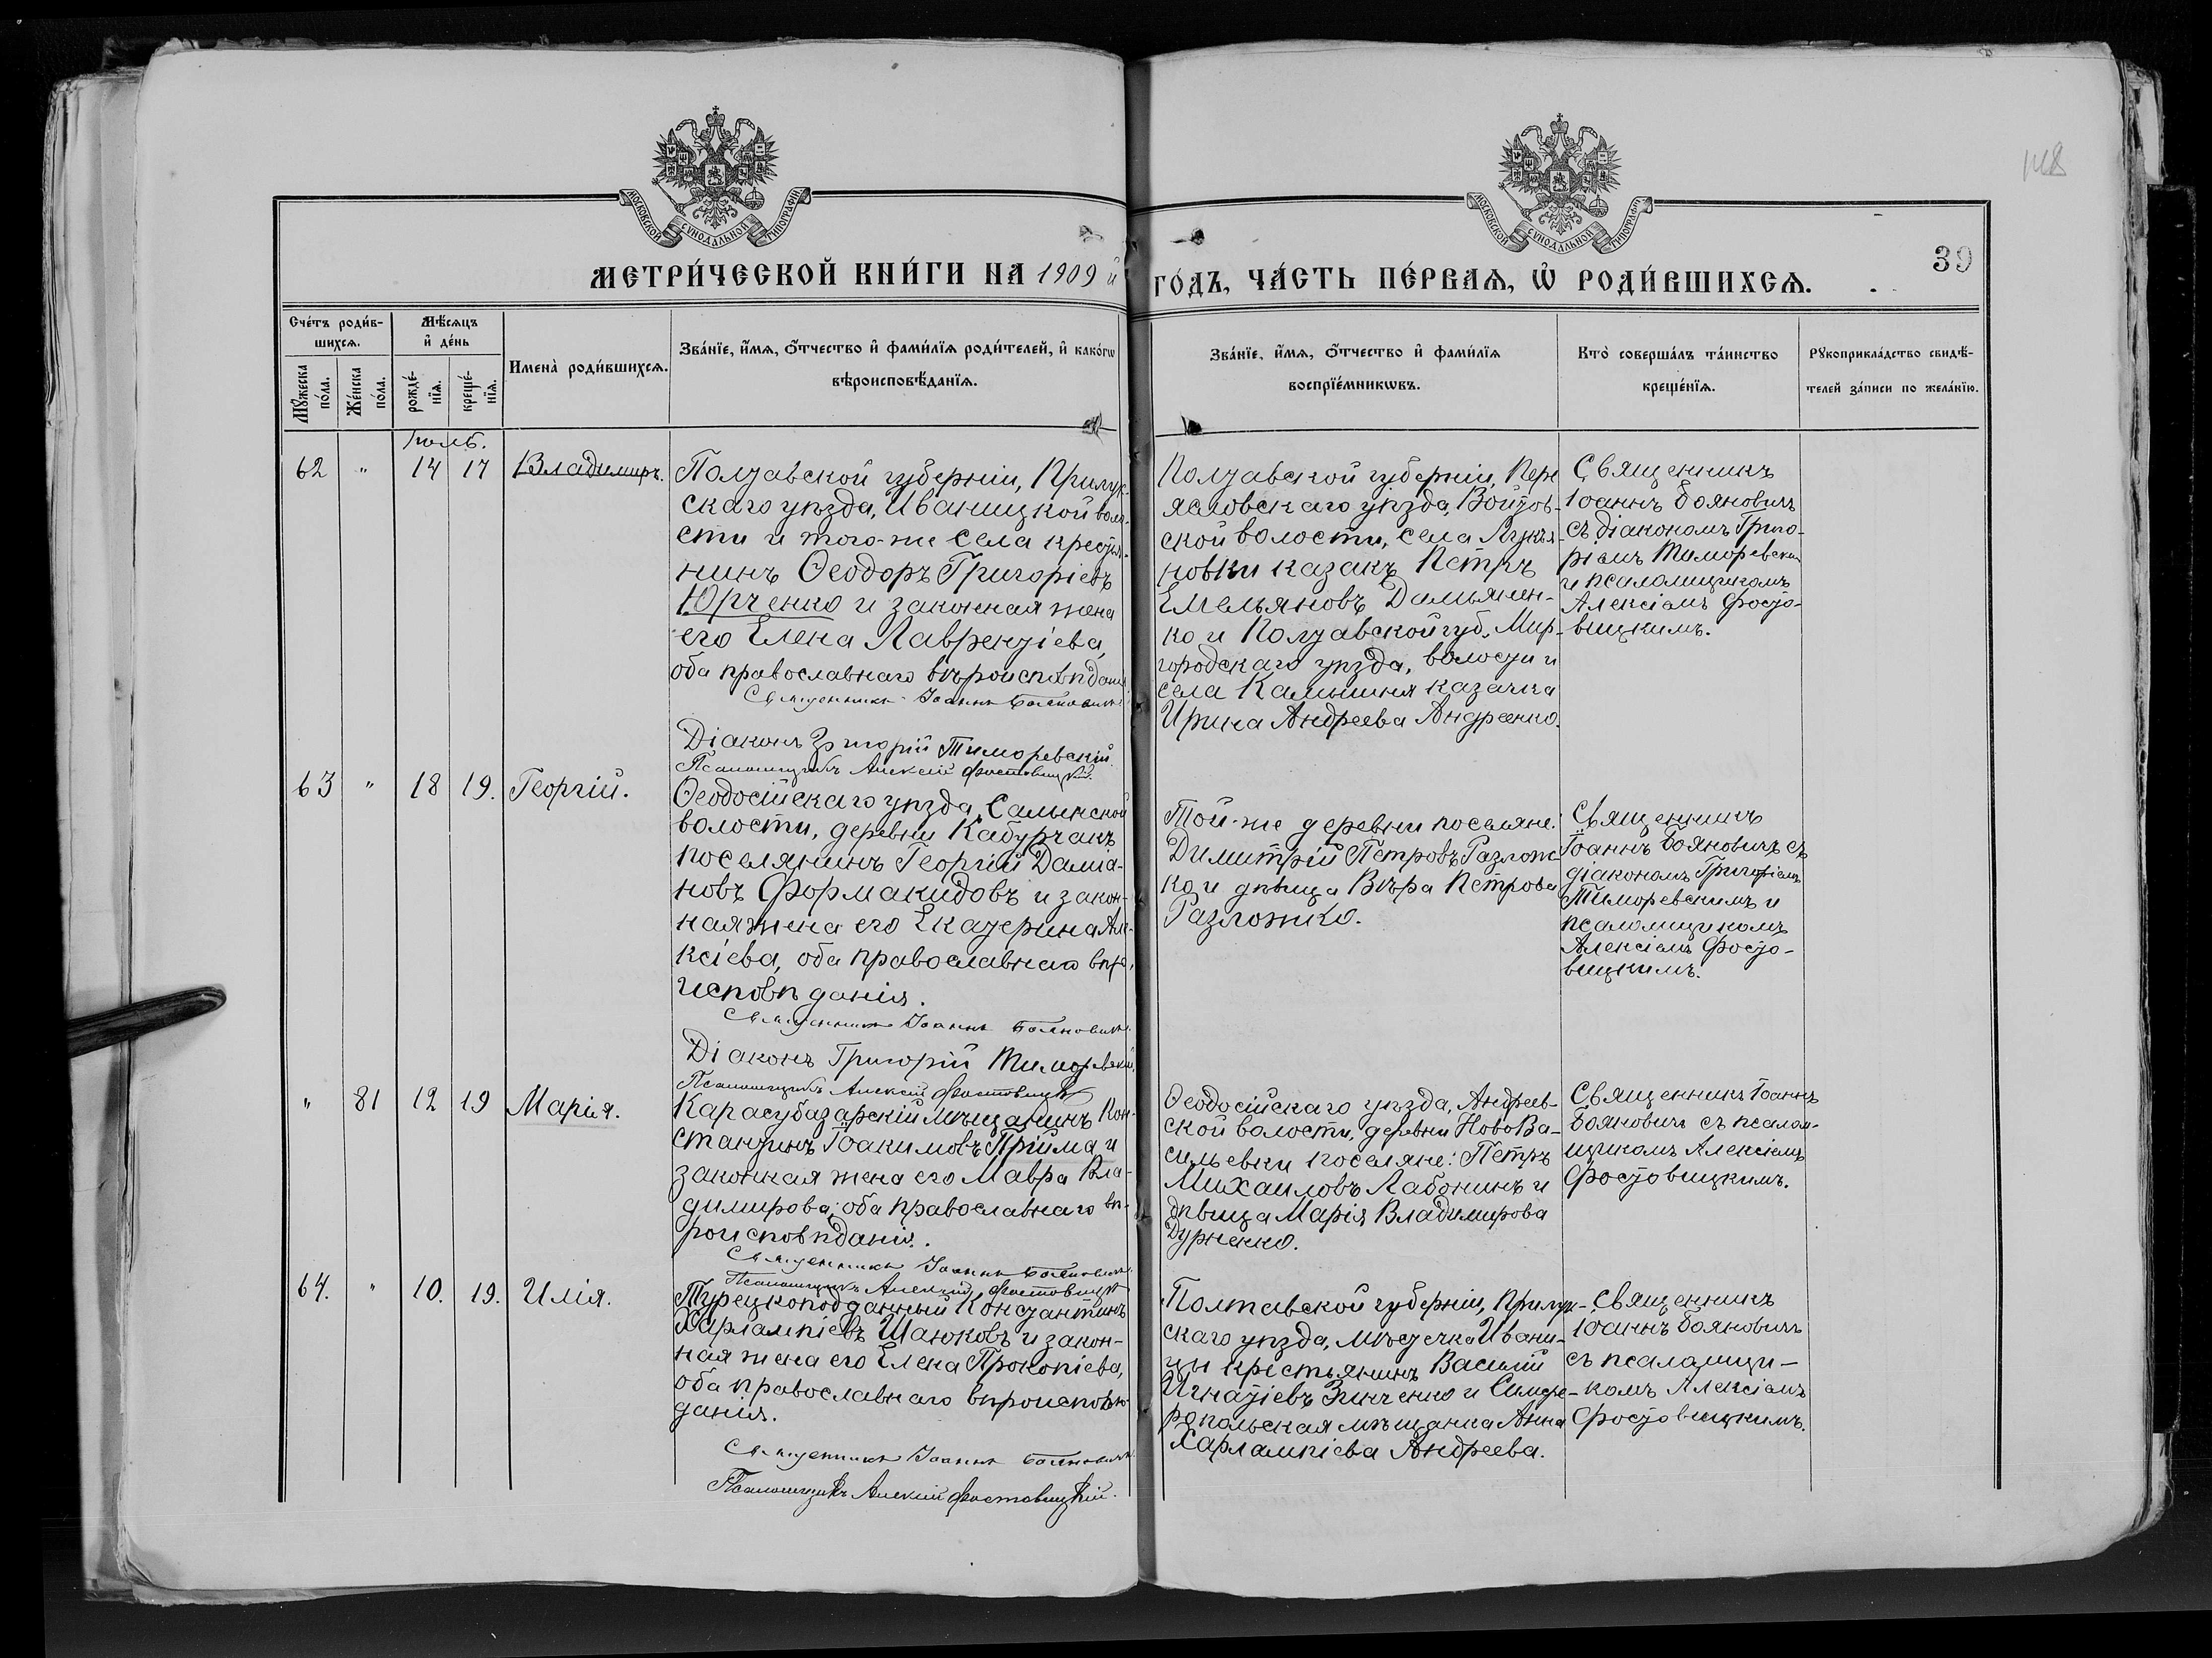 148
39
МОСКОВСКОЙ СѴНОДАЛЬНОЙ ТИПОГРАФІИ
МОСКОВСКОЙ СѴНОДАЛЬНОЙ ТИПОГРАФІИ
МЕТРИ́ЧЕСКОЙ КНИ́ГИ НА 1909 й
ГО́ДЪ, ЧА́СТЬ ПЕ́РВАѦ, Ѿ РОДИ́ВШИХСѦ.
Сче́тъ роди́в-
шихсѧ.
Мꙋ́жеска по́ла.
Же́нска по́ла.
Мѣ́сѧцъ
и҆ де́нь
рожде́-
нїѧ.
креще́-
нїѧ.
Имена̀ роди́вшихсѧ.
Зва́нїе, и҆́мѧ, ѻ҆́тчество и҆ фами́лїѧ роди́телей, и҆ како́гѡ
вѣроисповѣ́данїѧ.
Зва́нїе, и҆́мѧ, ѻ҆́тчество и҆ фами́лїѧ
воспрїе́мникѡвъ.
Кто̀ соверша́лъ та́инство
креще́нїѧ.
Рꙋкоприкла́дство свидѣ́-
телей за́писи по жела́нїю.
Іюль.
62 " 14 17 Владимиръ.
Полтавской губерніи, Прилук-
скаго уѣзда, Иваницкой воло-
сти и того-же села крестья-
нинъ Ѳеодоръ Григоріевъ
Юрченко и законная жена
его Елена Лаврентіева,
оба православнаго вѣроисповѣданія
Священникъ Іоаннъ Бояновичъ
Діаконъ Григорій Тиморевскій
Псаломщикъ Алексій Фостовицкій.
Полтавской губерніи, Пере
яславскаго уѣзда, Войтов-
ской волости, села Лукья-
новки казакъ Петръ
Емельяновъ Дамьянен-
ко и Полтавской губ. Мир-
городскаго уѣзда, волости и
села Камышня казачка
Ирина Андреева Андреенко.
Священникъ
Іоаннъ Бояновичъ
съ діакономъ Григо-
ріемъ Тиморевскимъ
и псаломщикомъ
Алексіемъ Фосто-
вицкимъ.
63 " 18 19. Георгій.
Ѳеодосійскаго уѣзда, Салынской
волости, деревни Кабурчакъ
поселянинъ Георгій Даміа-
новъ Формакидовъ и закон-
ная жена его Екатерина Але-
ксіева, оба православнаго вѣро-
исповѣданія.
Священникъ Іоаннъ Бояновичъ.
Діаконъ Григорій Тиморевскій
Псаломщикъ Алексій Фостовицкій
Той-же деревни поселяне:
Димитрій Петровъ Разлож-
ко и дѣвица Вѣра Петрова
Разложко.
Священникъ
Іоаннъ Бояновичъ съ
діакономъ Григоріемъ
Тиморевскимъ и
псаломщикомъ
Алексіемъ Фосто-
вицкимъ.
" 81 12 19 Марія.
Карасубазарскій мѣщанинъ Кон-
стантинъ Іоакимовъ Прійма и
законная жена его Мавра Вла-
димирова; оба православнаго вѣ-
роисповѣданія.
Священникъ Іоаннъ Бояновичъ.
Псаломщикъ Алексій Фостовицкій
Ѳеодосійскаго уѣзда, Андреев-
ской волости, деревни НовоВа-
сильевки поселяне: Петръ
Михаиловъ Лабонинъ и
дѣвица Марія Владимирова
Дурненко.
Священникъ Іоаннъ
Бояновичъ съ псалом-
щикомъ Алексіемъ
Фостовицкимъ.
64. " 10. 19. Илія.
Турецкоподданный Константинъ
Харлампіевъ Шаюковъ и закон-
ная жена его Елена Прокопіева,
оба православнаго вѣроисповѣ-
данія.
Священникъ Іоаннъ Бояновичъ.
Псаломщикъ Алексій Фостовицкій.
Полтавской губерніи, Прилук-
скаго уѣзда, мѣстечка Ивани-
цы крестьянинъ Василій
Игнатіевъ Зинченко и Симфе-
ропольская мѣщанка Анна
Харлампіева Андреева.
Священникъ
Іоаннъ Бояновичъ
съ псаломщи-
комъ Алексіемъ
Фостовицкимъ.